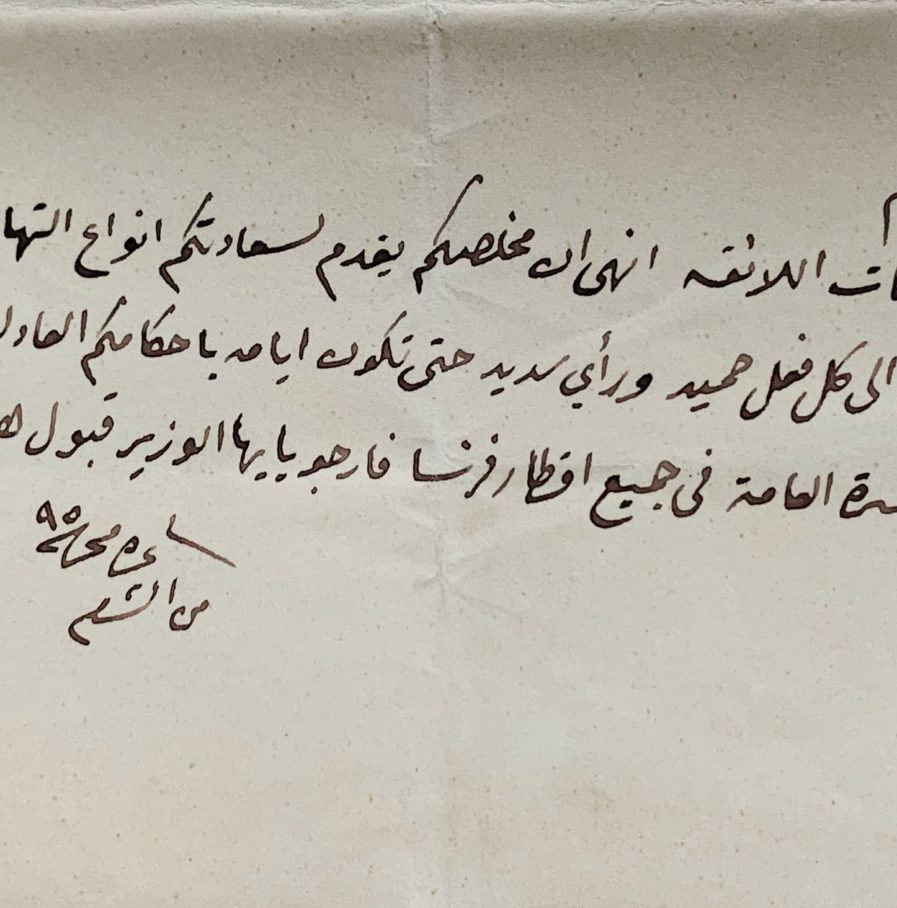 اللائقه انهى ان مخلصكم يقدم لسعادتكم انواع التها
الى كل فعل حميد ورأي سديد حتى تكون ايامه باحكامكم العادل
العامة فى جميع اقطار فرنسا فارجو يايها الوزير قبول
٩٥
من الشام